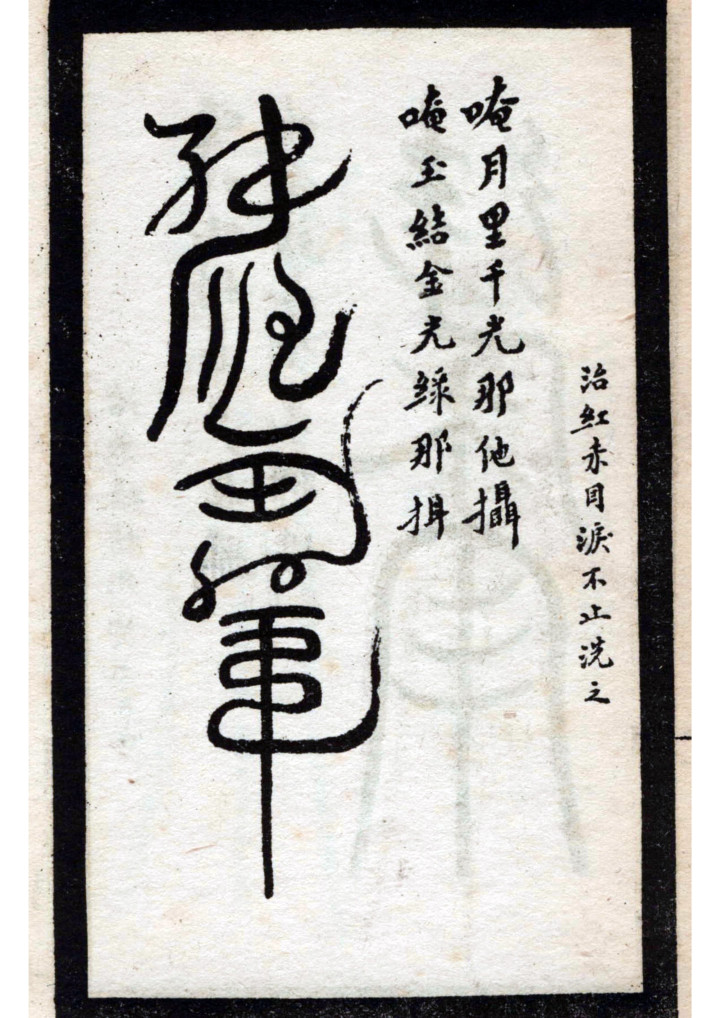 治紅赤目淚不止洗之
唵月里千光那他攝
唵玉結金光綠那揖